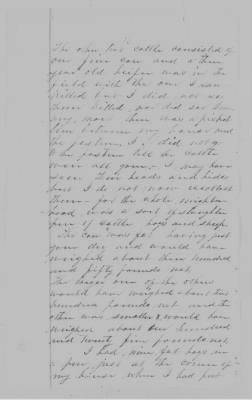 The other two cattle consisted of
one fine cow and a three
year old heifer was in the
field with the one I saw
killed but I did not see
them killed, nor did I see
any more there was a picket
line between my house and
the pasture, I did not go
to the pasture till the cattle
were all gone, I may have
seen their heads and hides
but I do not now recollect
them for the whole neighbor
hood was a sort of slaughter
pen of cattle hogs and sheep.
The cow was fat having just
your dry and would have
weighed about three hundred
and fifty pounds net.
The larger one of the others
would have weighed about two
hundred pounds net and the
other was smaller & would have
weighed about one hundred
and twenty five pounds net.
I had nine fat hogs in
a pen, just at the corner of
my house, when I had put